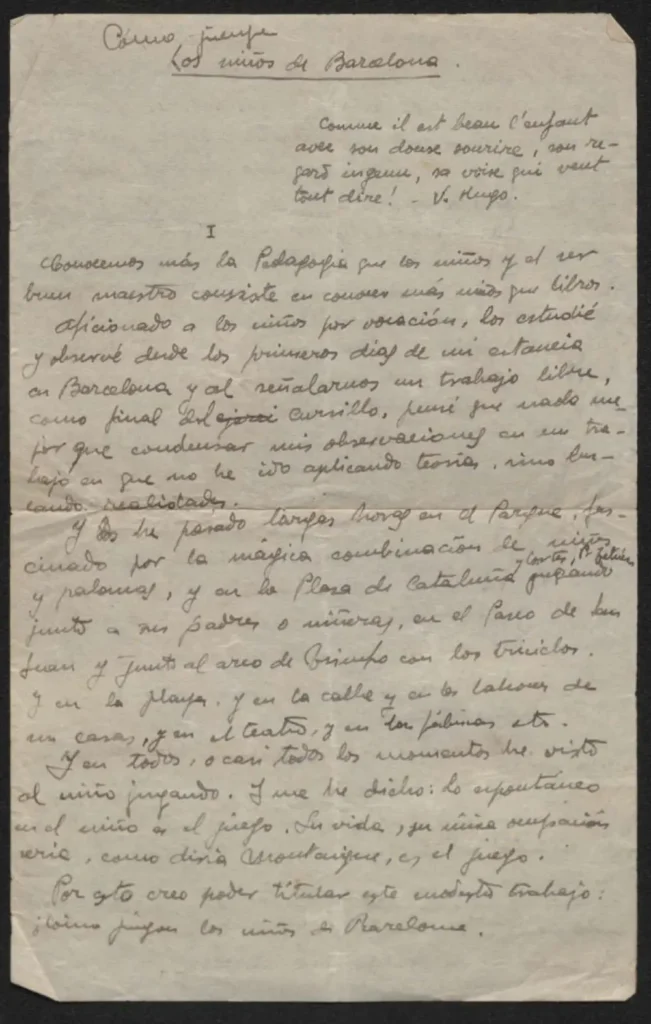 Cómo juegan
Los niños de Barcelona.
Comme il est beau l'enfant
avec son douse sourire, son re-
gard ingenu, sa voise qui veut
tout dire! - V. Hugo.
I
Conocemos más la Pedagogía que los niños y el ser
buen maestro consiste en conocer más niños que libros.
Aficionado a los niños por vocación, los estudié
y observé desde los primeros días de mi estancia
en Barcelona y al señalarnos un trabajo libre,
como final del cursillo, pensé que nada me-
jor que condensar mis observaciones en un tra-
bajo en que no he ido aplicando teorías, sino bus-
cando realidades.
Y he pasado largas horas en el Parque, fas-
cinado por la mágica combinación de niños
y palomas, y en la Plaza de Cataluña jugando
junto a sus padres o niñeras, en el Paseo de San
Juan y junto al arco de Triunfo con los triciclos.
Y en la playa, y en la calle y en las labores de
sus casas, y en el teatro, y en etc.
Y en todos, o casi todos los momentos he visto
al niño jugando. Y me he dicho: lo espontáneo
en el niño es el juego. Su vida, su única ocupación
seria, como diría Montaigne, es el juego.
Por esto creo poder titular este modesto trabajo:
Cómo juegan los niños de Barcelona.